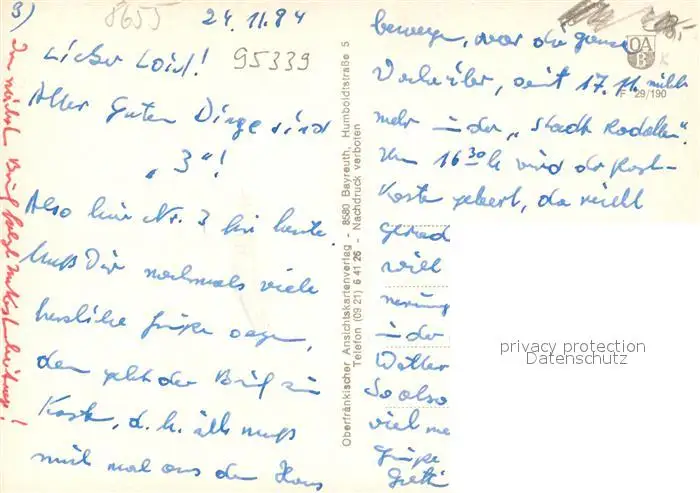 3)
8655
24.11.84
95339
Lieber Loisl!
Aller Guten Dinge sind
„3"!
Also hier Nr. 3 für heute
Muß Dir nochmals viele
herzliche Grüße sagen,
denn geht der Brief zum
Kasten, d. h. ich muß
mich mal aus dem Haus
Im nächsten Brief folgt
Oberfränkischer Ansichtskartenverlag - 8580 Bayreuth, Humboldtstraße 5
Telefon (09 21) 6 41 26 - Nachdruck verboten
OAB
F 29/190
bewegen, war die ganze
seit 17.11. nicht
mehr in der „Stadt
Um 16 30 h wird der Post-
Kasten geleert, da reicht
gerad
will
nerung
in der
Wetter
So also
viel me
Grüße
privacy protection
Datenschutz